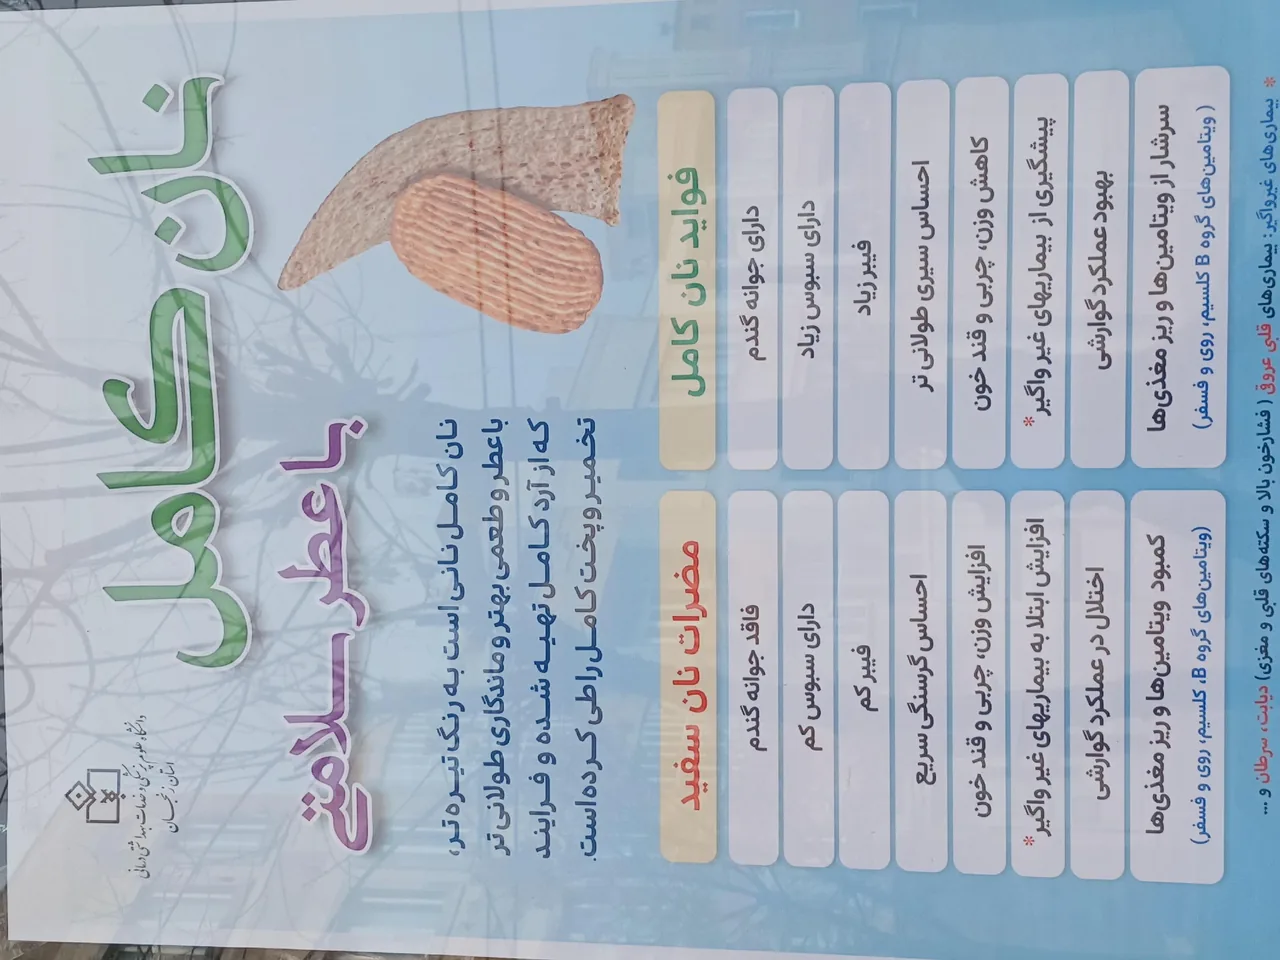 نان کامل
با عطر سلامتی
دانشگاه علوم پزشکی و خدمات بهداشتی درمانی
استان زنجان
نان کامل نانی است به رنگ تیره تر،
با عطر و طعمی بهتر و ماندگاری طولانی تر
که از آرد کامل تهیه شده و فرایند
تخمیر و پخت کامل را طی کرده است.
فواید نان کامل
دارای جوانه گندم
دارای سبوس زیاد
فیبر زیاد
احساس سیری طولانی تر
کاهش وزن، چربی و قند خون
پیشگیری از بیماریهای غیر واگیر *
بهبود عملکرد گوارشی
سرشار از ویتامین‌ها و ریز مغذی‌ها
( ویتامین‌های گروه B کلسیم، روی و فسفر)
مضرات نان سفید
فاقد جوانه گندم
دارای سبوس کم
فیبر کم
احساس گرسنگی سریع
افزایش وزن، چربی و قند خون
افزایش ابتلا به بیماریهای غیر واگیر *
اختلال در عملکرد گوارشی
کمبود ویتامین‌ها و ریز مغذی‌ها
(ویتامین‌های گروه B، کلسیم، روی و فسفر)
* بیماری‌های غیرواگیر : بیماری‌های قلبی عروقی ( فشارخون بالا و سکته‌های قلبی و مغزی) دیابت، سرطان و ...